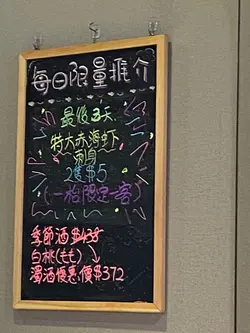 每日限量推介
最後3天
特大赤海虾
刺身
2隻$5
(一枱限定一客)
季節酒 $438
白桃(もも)
濁酒優惠價$372